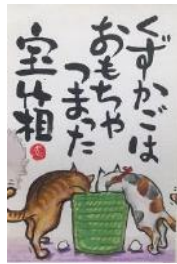 くずかごは
おもちゃ
つまった
宝箱